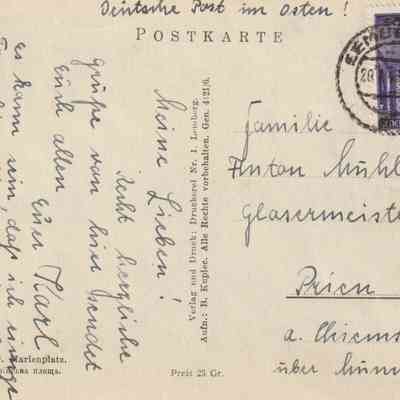 Deutsche Post im Osten!
POSTKARTE
Meine Lieben!
Recht herzliche
Grüße von hier sendet
euch allen
Euer Karl
es kann sein, daß ich einige
Verlag und Druck: Druckerei Nr. 1. Lemberg.
Aufn.: B. Kupiec. Alle Rechte vorbehalten. Gen. 4/21/6.
Familie
Anton Mühl
Glasermeiste
Prien
a. Chiems
über Mün
Marienplatz.
площа.
Preis 25 Gr.